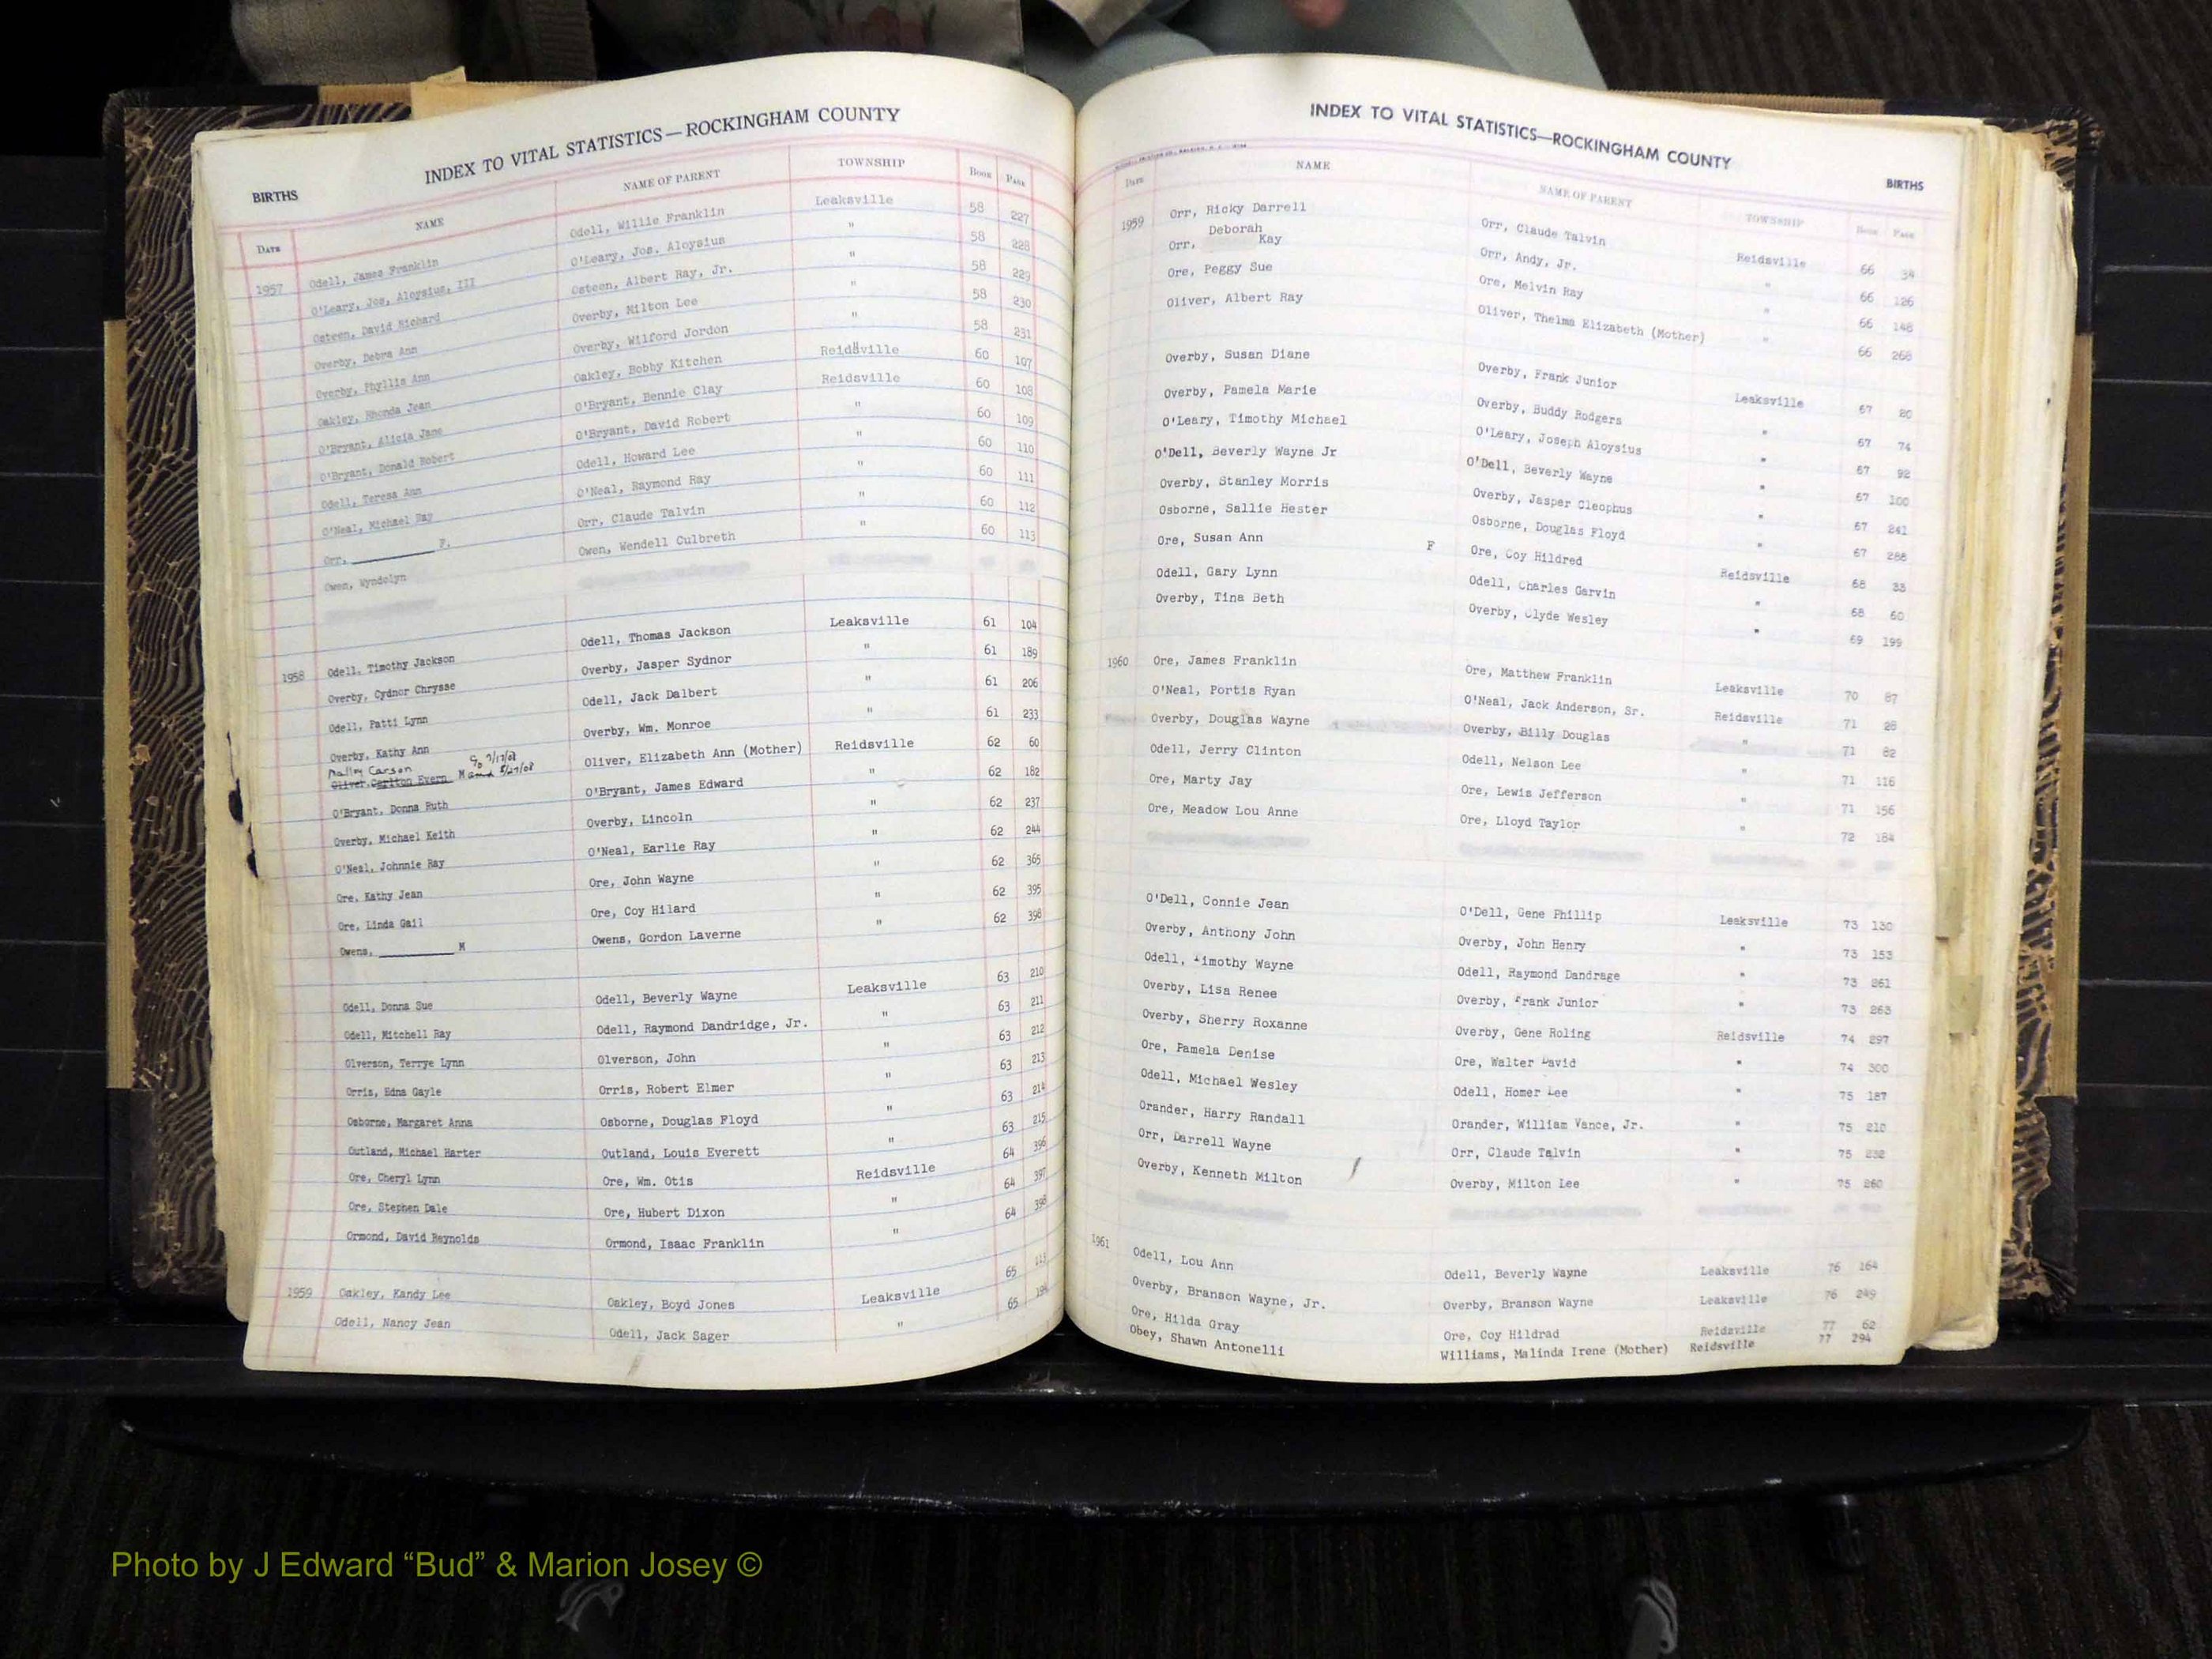 INDEX TO VITAL STATISTICS — ROCKINGHAM COUNTY
BIRTHS
DATE NAME NAME OF PARENT TOWNSHIP BOOK PAGE
1957 Odell, James Franklin Odell, Willie Franklin Leaksville 58 227
O'Leary, Jos. Aloysius, III O'Leary, Jos. Aloysius " 58 228
Osteen, David Richard Osteen, Albert Ray, Jr. " 58 229
Overby, Debra Ann Overby, Milton Lee " 58 230
Overby, Phyllis Ann Overby, Wilford Jordon " 58 231
Oakley, Rhonda Jean Oakley, Bobby Kitchen Reidsville 60 107
O'Bryant, Alicia Jane O'Bryant, Bennie Clay Reidsville 60 108
O'Bryant, Donald Robert O'Bryant, David Robert " 60 109
Odell, Teresa Ann Odell, Howard Lee " 60 110
O'Neal, Michael Ray O'Neal, Raymond Ray " 60 111
Orr, F. Orr, Claude Talvin " 60 112
Owen, Wyndolyn Owen, Wendell Culbreth " 60 113
1958 Odell, Timothy Jackson Odell, Thomas Jackson Leaksville 61 104
Overby, Cydnor Chrysse Overby, Jasper Sydnor " 61 189
Odell, Patti Lynn Odell, Jack Dalbert " 61 206
Overby, Kathy Ann Overby, Wm. Monroe " 61 233
Carson
Oliver, Carlton Evern M Oliver, Elizabeth Ann (Mother) Reidsville 62 60
O'Bryant, Donna Ruth O'Bryant, James Edward " 62 182
Overby, Michael Keith Overby, Lincoln " 62 237
O'Neal, Johnnie Ray O'Neal, Earlie Ray " 62 244
Ore, Kathy Jean Ore, John Wayne " 62 365
Ore, Linda Gail Ore, Coy Hilard " 62 395
Owens, M Owens, Gordon Laverne " 62 398
Odell, Donna Sue Odell, Beverly Wayne Leaksville 63 210
Odell, Mitchell Ray Odell, Raymond Dandridge, Jr. " 63 211
Olverson, Terrye Lynn Olverson, John " 63 212
Orris, Edna Gayle Orris, Robert Elmer " 63 213
Osborne, Margaret Anna Osborne, Douglas Floyd " 63 214
Outland, Michael Harter Outland, Louis Everett " 63 215
Ore, Cheryl Lynn Ore, Wm. Otis Reidsville 64 396
Ore, Stephen Dale Ore, Hubert Dixon " 64 397
Ormond, David Reynolds Ormond, Isaac Franklin " 64 398
1959 Oakley, Kandy Lee Oakley, Boyd Jones Leaksville 65 113
Odell, Nancy Jean Odell, Jack Sager " 65
INDEX TO VITAL STATISTICS—ROCKINGHAM COUNTY
BIRTHS
DATE NAME NAME OF PARENT TOWNSHIP BOOK PAGE
1959 Orr, Ricky Darrell Orr, Claude Talvin Reidsville 66 34
Deborah
Orr, Kay Orr, Andy, Jr. " 66 126
Ore, Peggy Sue Ore, Melvin Ray " 66 148
Oliver, Albert Ray Oliver, Thelma Elizabeth (Mother) " 66 268
Overby, Susan Diane Overby, Frank Junior Leaksville 67 20
Overby, Pamela Marie Overby, Buddy Rodgers " 67 74
O'Leary, Timothy Michael O'Leary, Joseph Aloysius " 67 92
O'Dell, Beverly Wayne Jr O'Dell, Beverly Wayne " 67 100
Overby, Stanley Morris Overby, Jasper Cleophus " 67 241
Osborne, Sallie Hester Osborne, Douglas Floyd " 67 288
Ore, Susan Ann F Ore, Coy Hildred Reidsville 68 33
Odell, Gary Lynn Odell, Charles Garvin " 68 60
Overby, Tina Beth Overby, Clyde Wesley " 69 199
1960 Ore, James Franklin Ore, Matthew Franklin Leaksville 70 87
O'Neal, Portis Ryan O'Neal, Jack Anderson, Sr. Reidsville 71 28
Overby, Douglas Wayne Overby, Billy Douglas " 71 82
Odell, Jerry Clinton Odell, Nelson Lee " 71 116
Ore, Marty Jay Ore, Lewis Jefferson " 71 156
Ore, Meadow Lou Anne Ore, Lloyd Taylor " 72 184
O'Dell, Connie Jean O'Dell, Gene Phillip Leaksville 73 130
Overby, Anthony John Overby, John Henry " 73 153
Odell, Timothy Wayne Odell, Raymond Dandrage " 73 261
Overby, Lisa Renee Overby, Frank Junior " 73 263
Overby, Sherry Roxanne Overby, Gene Roling Reidsville 74 297
Ore, Pamela Denise Ore, Walter David " 74 300
Odell, Michael Wesley Odell, Homer Lee " 75 187
Orander, Harry Randall Orander, William Vance, Jr. " 75 210
Orr, Darrell Wayne Orr, Claude Talvin " 75 232
Overby, Kenneth Milton Overby, Milton Lee " 75 260
1961 Odell, Lou Ann Odell, Beverly Wayne Leaksville 76 164
Overby, Branson Wayne, Jr. Overby, Branson Wayne Leaksville 76 249
Ore, Hilda Gray Ore, Coy Hildrad Reidsville 77 62
Obey, Shawn Antonelli Williams, Malinda Irene (Mother) Reidsville 77 294
Photo by J Edward “Bud” & Marion Josey ©